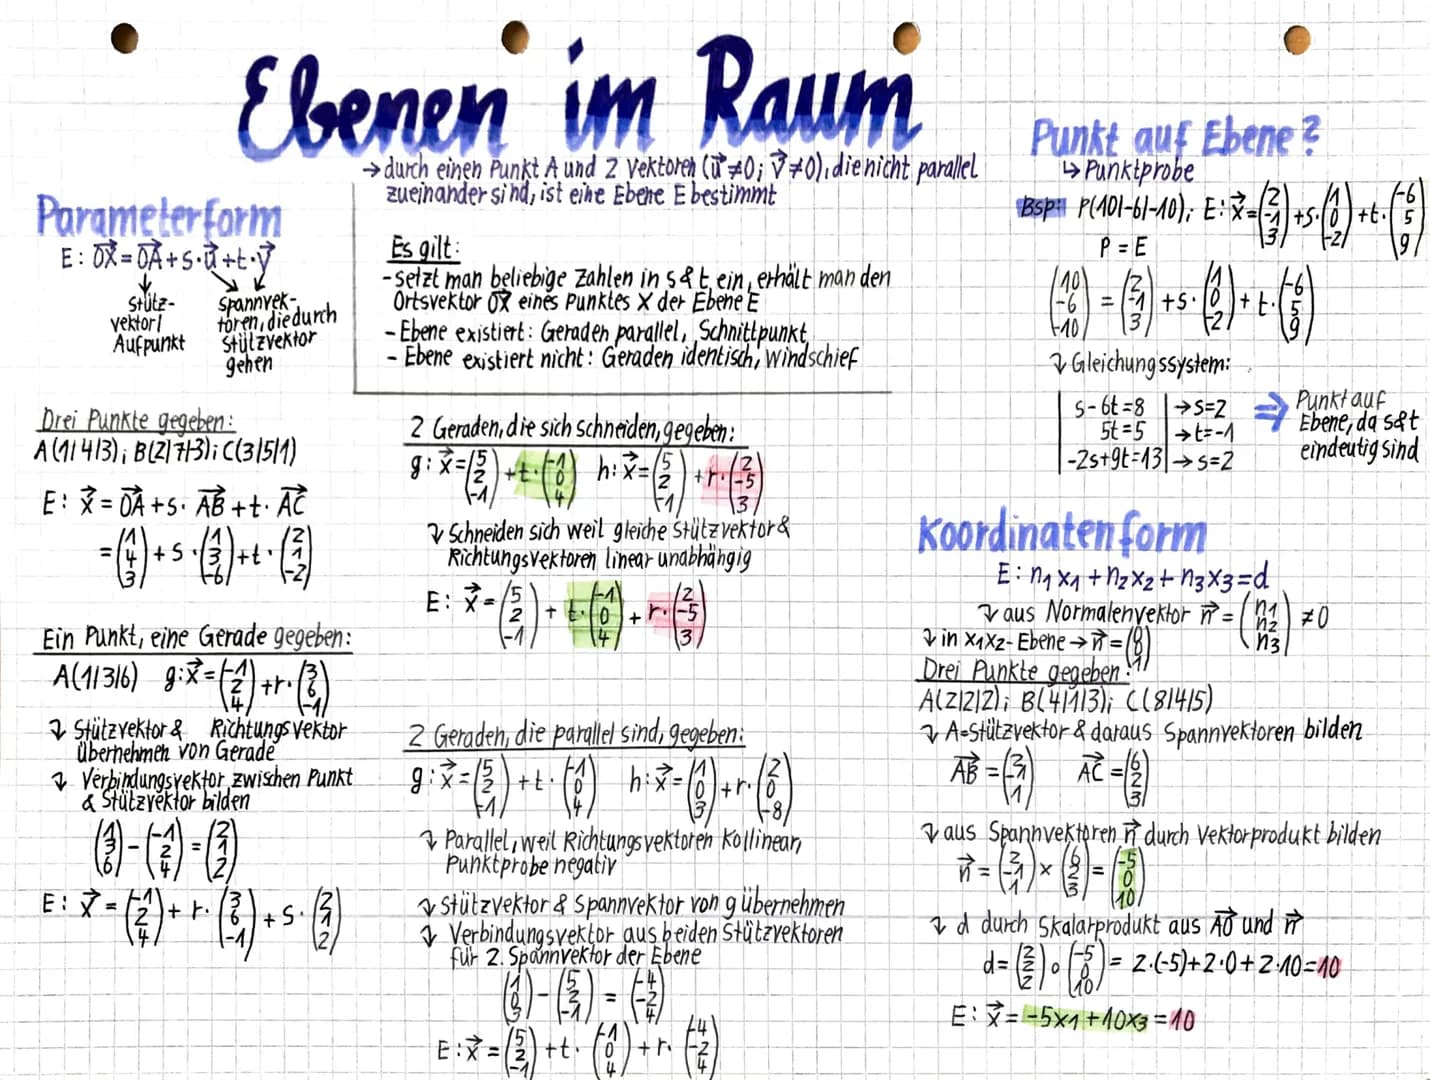 Ebenen im Raum
→ durch einen Punkt A und 2 Vektoren (u⃗≠0; v⃗≠0), die nicht parallel
zueinander sind, ist eine Ebene E bestimmt
Parameterform
E: OX⃗ = OA⃗ + s·u⃗ + t·v⃗
Stütz-
vektor/
Aufpunkt
Spannvek-
toren, die durch
Stützvektor
gehen
Es gilt:
- setzt man beliebige Zahlen in s & t ein, erhält man den
Ortsvektor OX⃗ eines Punktes X der Ebene E
- Ebene existiert: Geraden parallel, Schnittpunkt
- Ebene existiert nicht: Geraden identisch, windschief
Drei Punkte gegeben:
A(1|4|3); B(2|7|-3); C(3|5|1)
E: x⃗ = OA⃗ + s· AB⃗ + t· AC⃗
= (1 4 3) + s · (1 3 -6) + t · (2 1 -2)
Ein Punkt, eine Gerade gegeben:
A(1|3|6) g: x⃗ = (-1 2 4) + r· (3 6 -1)
↴ Stützvektor & Richtungsvektor
übernehmen von Gerade
↴ Verbindungsvektor zwischen Punkt
& Stützvektor bilden
(1 3 6) - (-1 2 4) = (2 1 2)
E: x⃗ = (-1 2 4) + r· (3 6 -1) + s· (2 1 2)
2 Geraden, die sich schneiden, gegeben:
g: x⃗ = (5 2 -1) + t· (-1 0 4) h: x⃗ = (5 2 -1) + r· (2 -5 3)
↴ Schneiden sich weil gleiche Stützvektor &
Richtungsvektoren linear unabhängig
E: x⃗ = (5 2 -1) + t· (-1 0 4) + r· (2 -5 3)
2 Geraden, die parallel sind, gegeben:
g: x⃗ = (5 2 -1) + t· (-1 0 4) h: x⃗ = (1 0 3) + r· (2 0 -8)
↴ Parallel, weil Richtungsvektoren kollinear,
Punktprobe negativ
↴ Stützvektor & Spannvektor von g übernehmen
↴ Verbindungsvektor aus beiden Stützvektoren
für 2. Spannvektor der Ebene
(1 0 3) - (5 2 -1) = (-4 -2 4)
E: x⃗ = (5 2 -1) + t· (-1 0 4) + r· (-4 -2 4)
Punkt auf Ebene?
↳ Punktprobe
Bsp: P(10|-6|-10); E: x⃗ = (2 -1 3) + s· (1 0 -2) + t· (-6 5 9)
P = E
(10 -6 -10) = (2 -1 3) + s· (1 0 -2) + t· (-6 5 9)
↴ Gleichungssystem:
s - 6t = 8 → s = 2
5t = 5 → t = -1
-2s + 9t = 13 → s = 2
⇒ Punkt auf
Ebene, da s&t
eindeutig sind
Koordinatenform
E: n₁x₁ + n₂x₂ + n₃x₃ = d
↴ aus Normalenvektor n⃗ = (n₁ n₂ n₃) ≠ 0
↴ in x₁x₂-Ebene → n⃗ = (0 0 1)
Drei Punkte gegeben:
A(2|2|2); B(4|1|3); C(8|4|5)
↴ A=Stützvektor & daraus Spannvektoren bilden
AB⃗ = (2 -1 1) AC⃗ = (6 2 3)
↴ aus Spannvektoren n⃗ durch Vektorprodukt bilden
n⃗ = (2 -1 1) × (6 2 3) = (-5 0 10)
↴ d durch Skalarprodukt aus AO⃗ und n⃗
d = (2 2 2) ∘ (-5 0 10) = 2·(-5)+2·0+2·10=10
E: x⃗ = -5x₁ + 10x₃ = 10